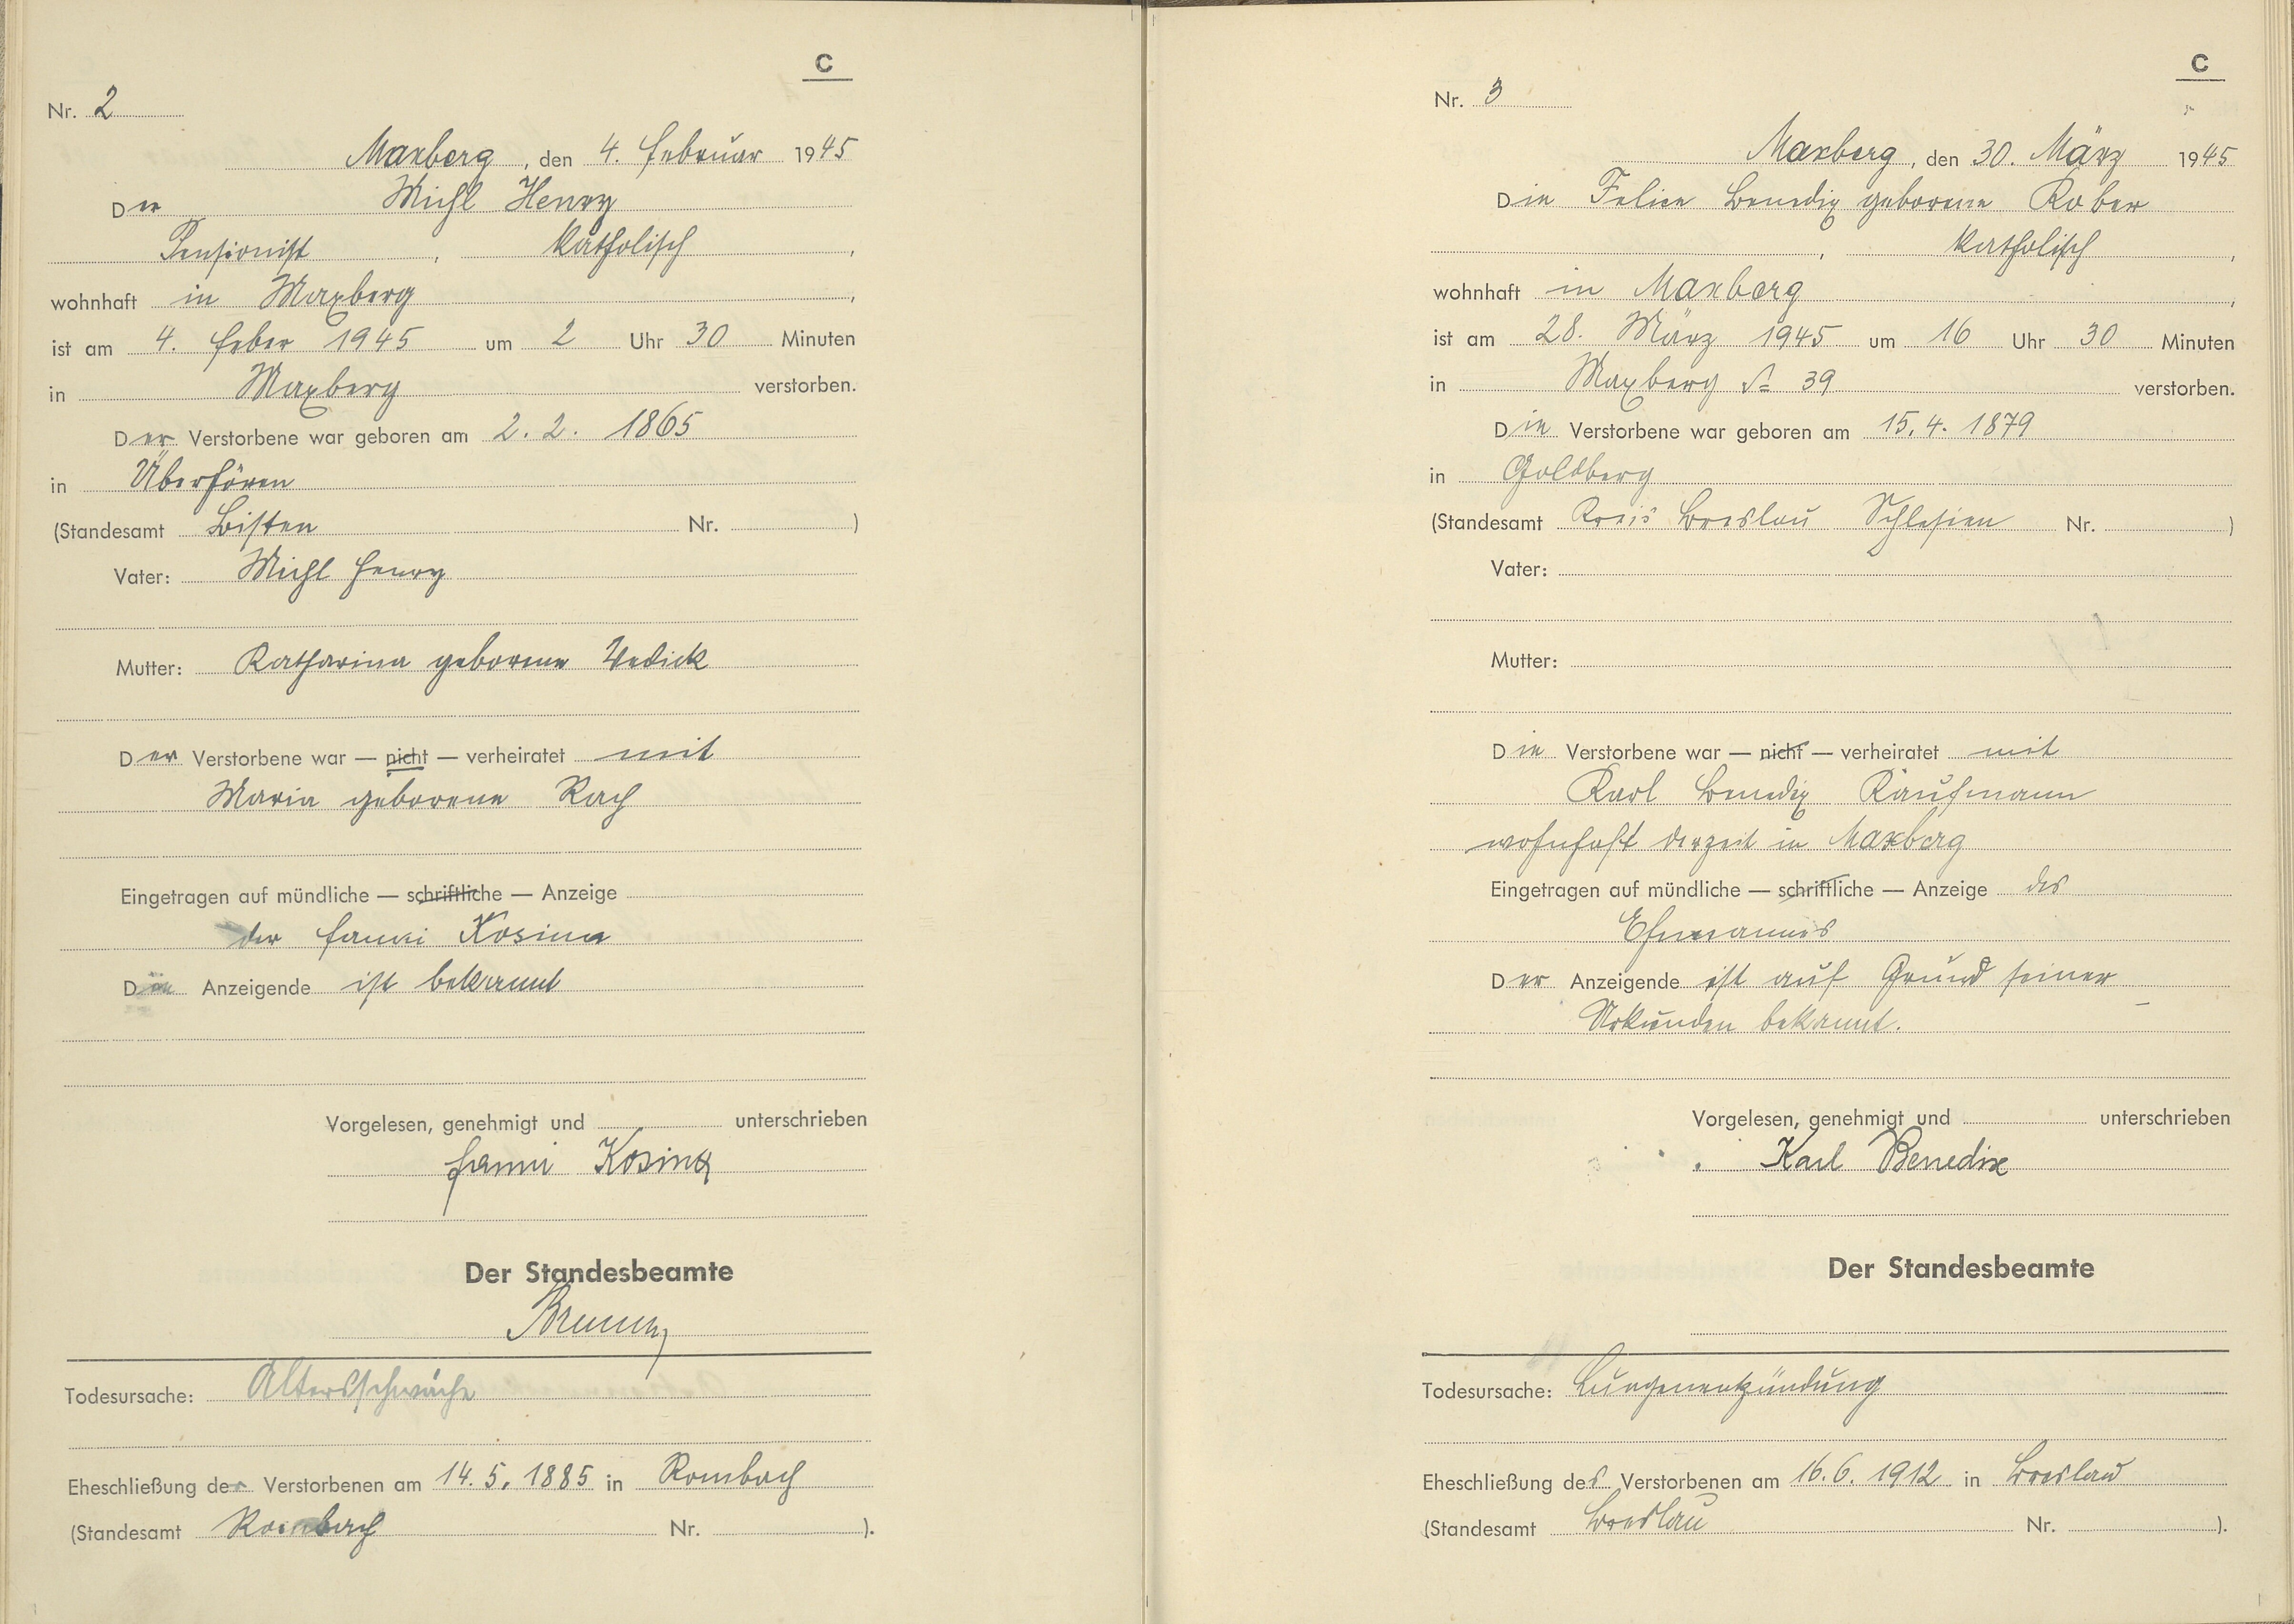 C
Nr. 2
Maxberg, den 4. Februar 1945
Der Michl Henry
Pensionist, katholisch,
wohnhaft in Maxberg,
ist am 4. Feber 1945 um 2 Uhr 30 Minuten
in Maxberg verstorben.
Der Verstorbene war geboren am 2. 2. 1865
in Überhören
(Standesamt Bisten Nr. )
Vater: Michl Henry
Mutter: Katharina geborene
Der Verstorbene war — nicht — verheiratet mit
Maria geborene Rach
Eingetragen auf mündliche — schriftliche — Anzeige
der Fanni Kosina
Die Anzeigende ist bekannt
Vorgelesen, genehmigt und unterschrieben
Fanni Kosina
Der Standesbeamte
Todesursache: Altersschwäche
Eheschließung des Verstorbenen am 14. 5. 1885 in Rombach
(Standesamt Rombach Nr. ).
C
Nr. 3
Maxberg, den 30. März 1945
Die Felice Benedix geborene Rober
katholisch,
wohnhaft in Maxberg,
ist am 28. März 1945 um 16 Uhr 30 Minuten
in Maxberg № 39 verstorben.
Die Verstorbene war geboren am 15. 4. 1879
in Goldberg
(Standesamt Kreis Breslau Schlesien Nr. )
Vater:
Mutter:
Die Verstorbene war — nicht — verheiratet mit
Karl Benedix Kaufmann
wohnhaft derzeit in Maxberg
Eingetragen auf mündliche — schriftliche — Anzeige des
Ehemannes
Der Anzeigende ist auf Grund seiner
Urkunden bekannt.
Vorgelesen, genehmigt und unterschrieben
Karl Benedix
Der Standesbeamte
Todesursache: Lungenentzündung
Eheschließung des Verstorbenen am 16. 6. 1912 in Breslau
(Standesamt Breslau Nr. ).